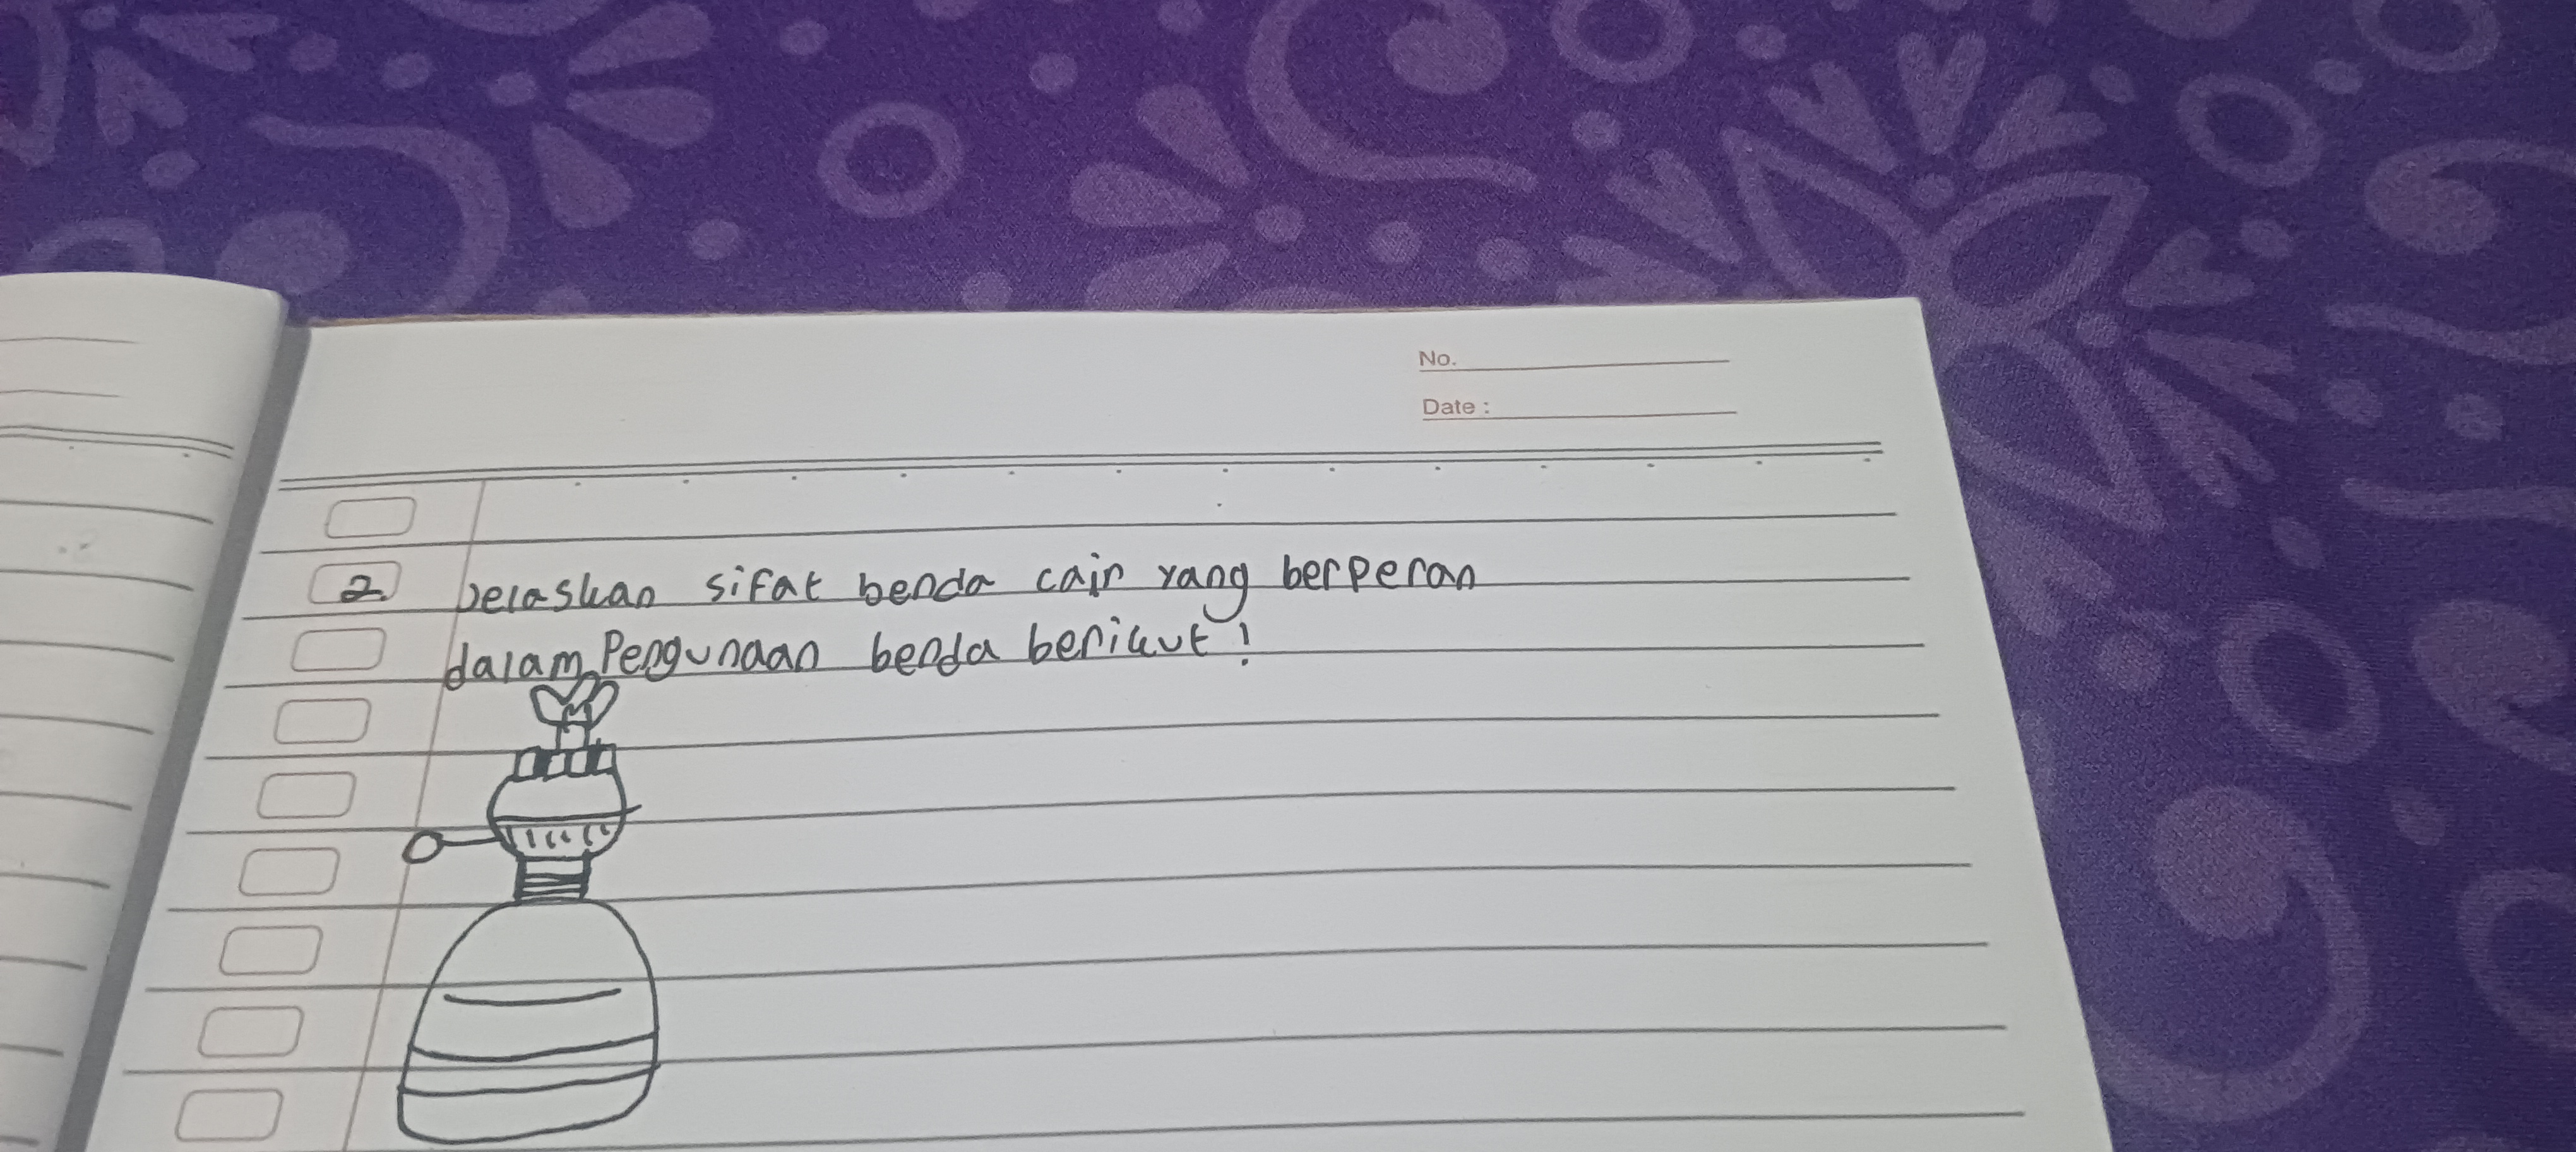 No.
Date :
2. Jelaskan sifat benda cair yang berperan
dalam Pengunaan benda berikut !